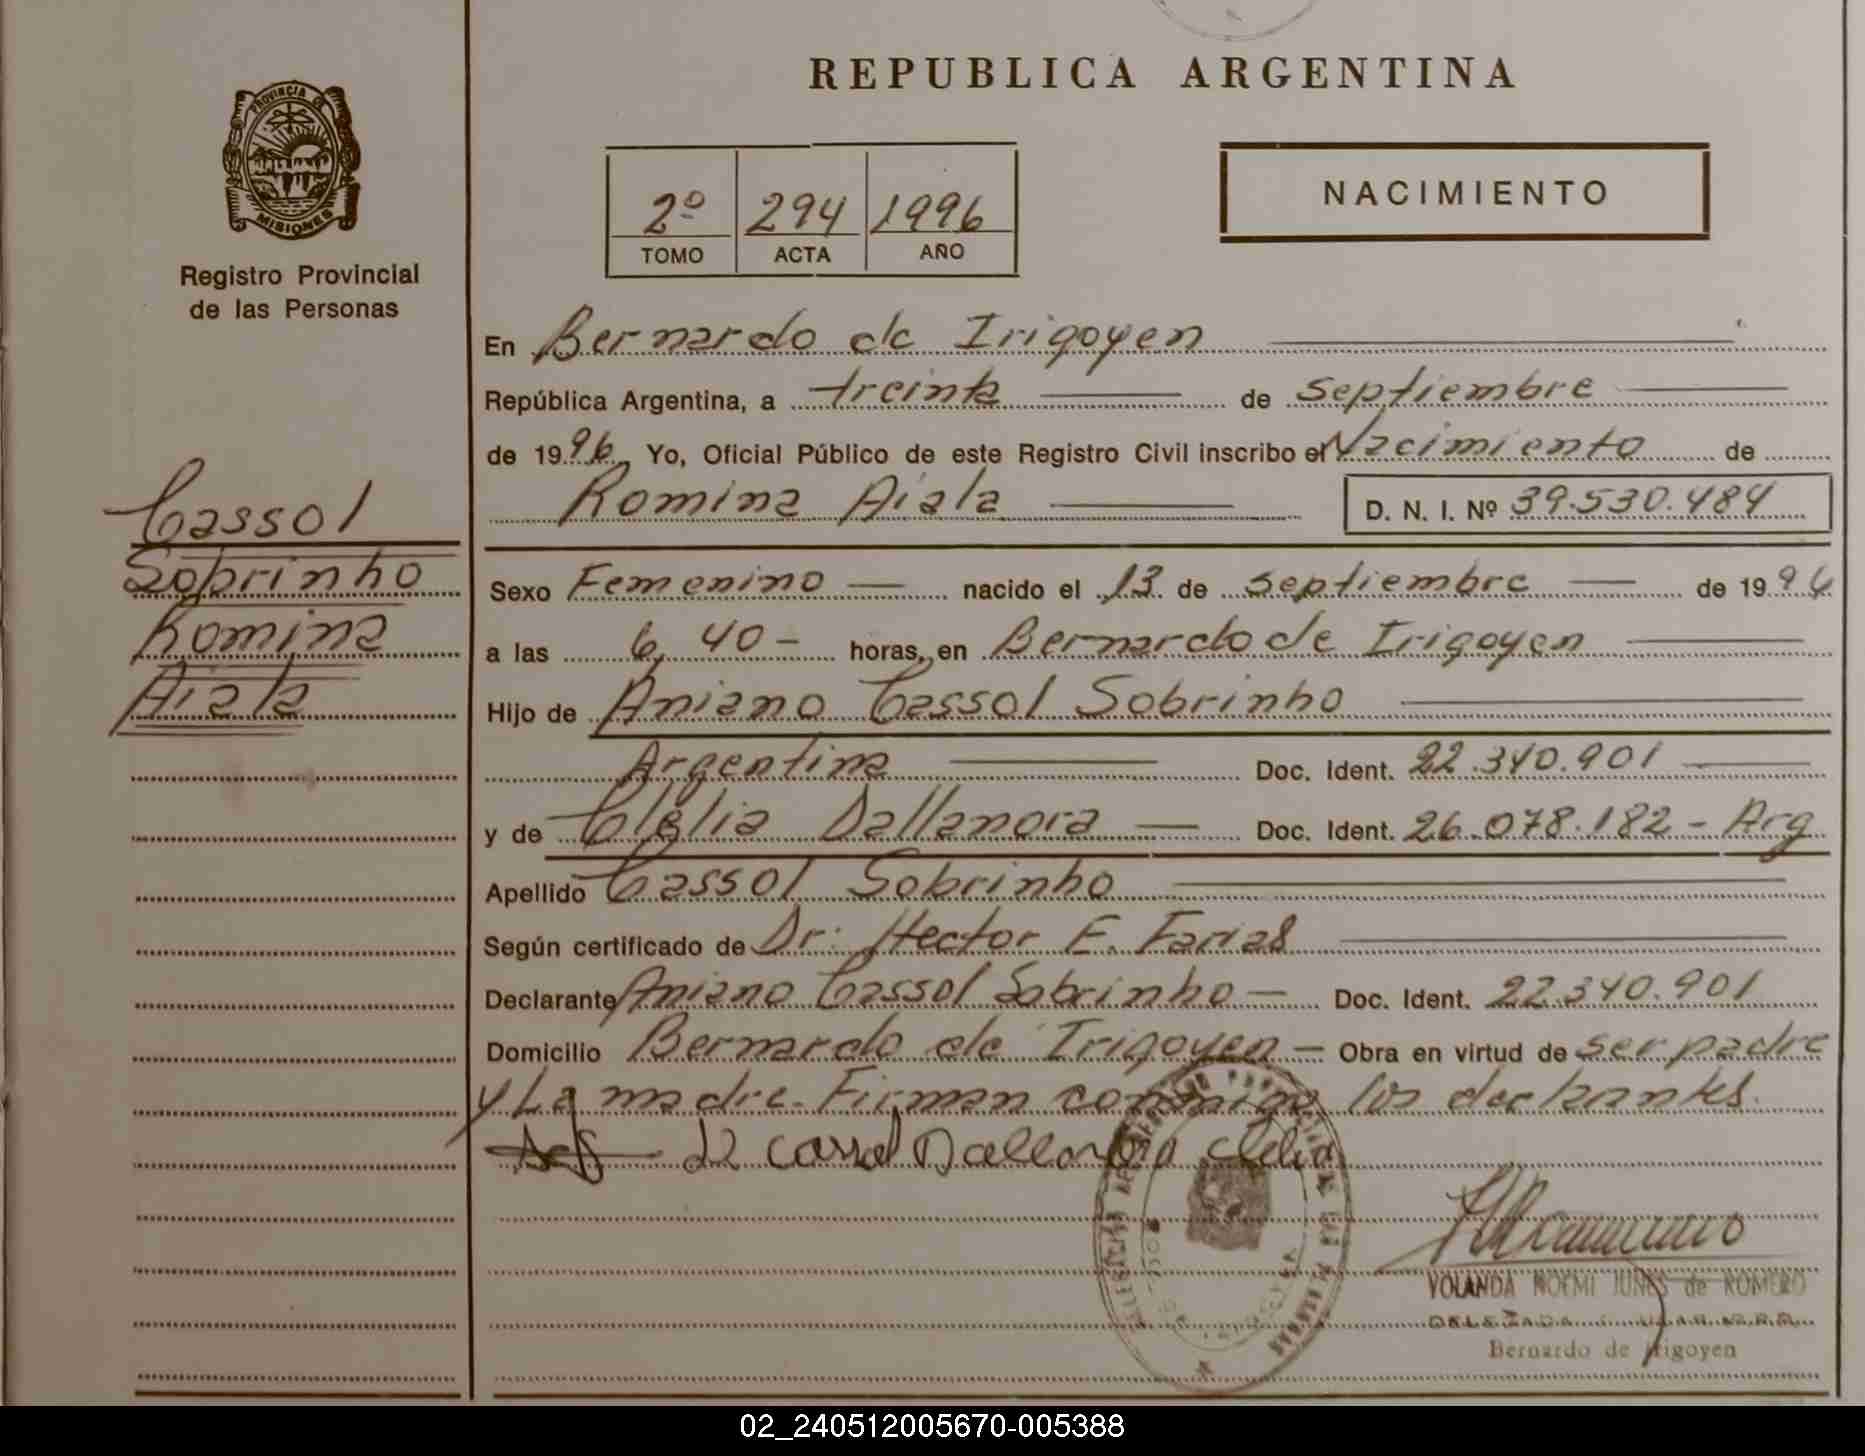 REPUBLICA ARGENTINA
PROVINCIA DE
MISIONES
Registro Provincial
de las Personas
2º 294 1996
TOMO ACTA AÑO
NACIMIENTO
En Bernardo de Irigoyen
República Argentina, a treinta de Septiembre
de 1996 Yo, Oficial Público de este Registro Civil inscribo el Nacimiento de
Romina Aiala D. N. I. Nº 39.530.484
Cassol
Sobrinho
Romina
Aiala
Sexo Femenino nacido el 13 de Septiembre de 1996
a las 6, 40 - horas, en Bernardo de Irigoyen
Hijo de Aniano Cassol Sobrinho
Argentina Doc. Ident. 22.340.901
y de Clelia Dallanora Doc. Ident. 26.078.182 - Arg
Apellido Cassol Sobrinho
Según certificado de Dr. Hector E. Farias
Declarante Aniano Cassol Sobrinho - Doc. Ident. 22.340.901
Domicilio Bernardo de Irigoyen - Obra en virtud de ser padre
y La madre. Firman conmigo los declarantes.
Dallanora Clelia
YOLANDA NOEMI JUNES de ROMERO
Bernardo de Irigoyen
02_240512005670-005388